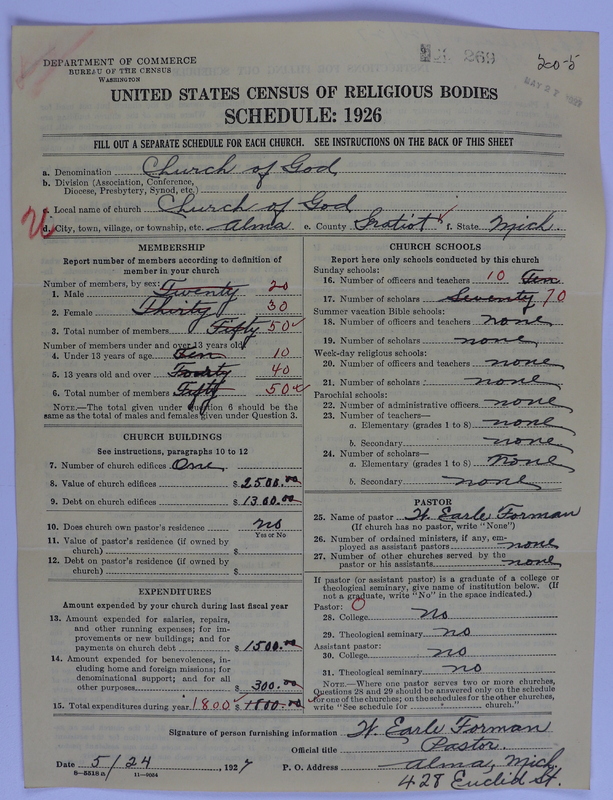 DEPARTMENT OF COMMERCE
BUREAU OF THE CENSUS
WASHINGTON
269
20-5
MAY 27
UNITED STATES CENSUS OF RELIGIOUS BODIES
SCHEDULE: 1926
FILL OUT A SEPARATE SCHEDULE FOR EACH CHURCH. SEE INSTRUCTIONS ON THE BACK OF THIS SHEET
a. Denomination Church of God
b. Division (Association, Conference,
Diocese, Presbytery, Synod, etc.)
c. Local name of church Church of God
d. City, town, village, or township, etc. Alma e. County Gratiot f. State Mich
MEMBERSHIP
Report number of members according to definition of
member in your church
Number of members, by sex:
1. Male Twenty 20
2. Female Thirty 30
3. Total number of members Fifty 50
Number of members under and over 13 years old:
4. Under 13 years of age Ten 10
5. 13 years old and over Fourty 40
6. Total number of members Fifty 50
NOTE.—The total given under Question 6 should be the
same as the total of males and females given under Question 3.
CHURCH BUILDINGS
See instructions, paragraphs 10 to 12
7. Number of church edifices One
8. Value of church edifices $ 2500.00
9. Debt on church edifices $ 1300.00
10. Does church own pastor's residence no
Yes or No
11. Value of pastor's residence (if owned by
church) $
12. Debt on pastor's residence (if owned by
church) $
EXPENDITURES
Amount expended by your church during last fiscal year
13. Amount expended for salaries, repairs,
and other running expenses; for im-
provements or new buildings; and for
payments on church debt $ 1500.00
14. Amount expended for benevolences, in-
cluding home and foreign missions; for
denominational support; and for all
other purposes $ 300.00
15. Total expenditures during year 1800 $ 1800.00
CHURCH SCHOOLS
Report here only schools conducted by this church
Sunday schools:
16. Number of officers and teachers 10 Ten
17. Number of scholars Seventy 70
Summer vacation Bible schools:
18. Number of officers and teachers none
19. Number of scholars none
Week-day religious schools:
20. Number of officers and teachers none
21. Number of scholars none
Parochial schools:
22. Number of administrative officers none
23. Number of teachers—
a. Elementary (grades 1 to 8) none
b. Secondary none
24. Number of scholars—
a. Elementary (grades 1 to 8) none
b. Secondary none
PASTOR
25. Name of pastor W. Earle Forman
(If church has no pastor, write "None")
26. Number of ordained ministers, if any, em-
ployed as assistant pastors none
27. Number of other churches served by the
pastor or his assistants none
If pastor (or assistant pastor) is a graduate of a college or
theological seminary, give name of institution below. (If
not a graduate, write "No" in the space indicated.)
Pastor: 0
28. College no
29. Theological seminary no
Assistant pastor:
30. College no
31. Theological seminary no
NOTE.—Where one pastor serves two or more churches,
Questions 28 and 29 should be answered only on the schedule
for one of the churches; on the schedules for the other churches,
write "See schedule for " church."
Signature of person furnishing information W. Earle Forman
Official title Pastor.
Date 5/24, 1927 P. O. Address Alma, Mich.
8-5518a 11-9054
428 Euclid St.